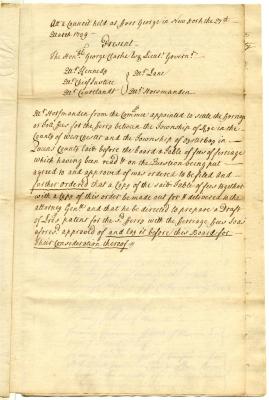 Att a Council held at Fort George in New York the 27th
March 1739
Present
The Honble George Clarke Esqr Lieut Governr
Mr Kennedy
Mr Chief Justice
Mr Cortlandt
Mr Lane
Mr Horsmanden
Mr Horsmanden from the Committee appointed to settle the
fees for the ferry between the Township of Rye in the
County of Westchester and the Township of Oysterbay in
Queens County Laid before the board a Table of fees of ferriage
which having been read & on the Question being put
agreed to and approved of was ordered to be filed and
further ordered that a Copy of the said Table of fees together
with a Copy of this order be made out & delivered
attorney Genll and that he be directed to prepare a Draft
of Letters patent for the sd ferry with the ferriage fees
aforesd approved of and lay it before this Board for
their Consideration thereof